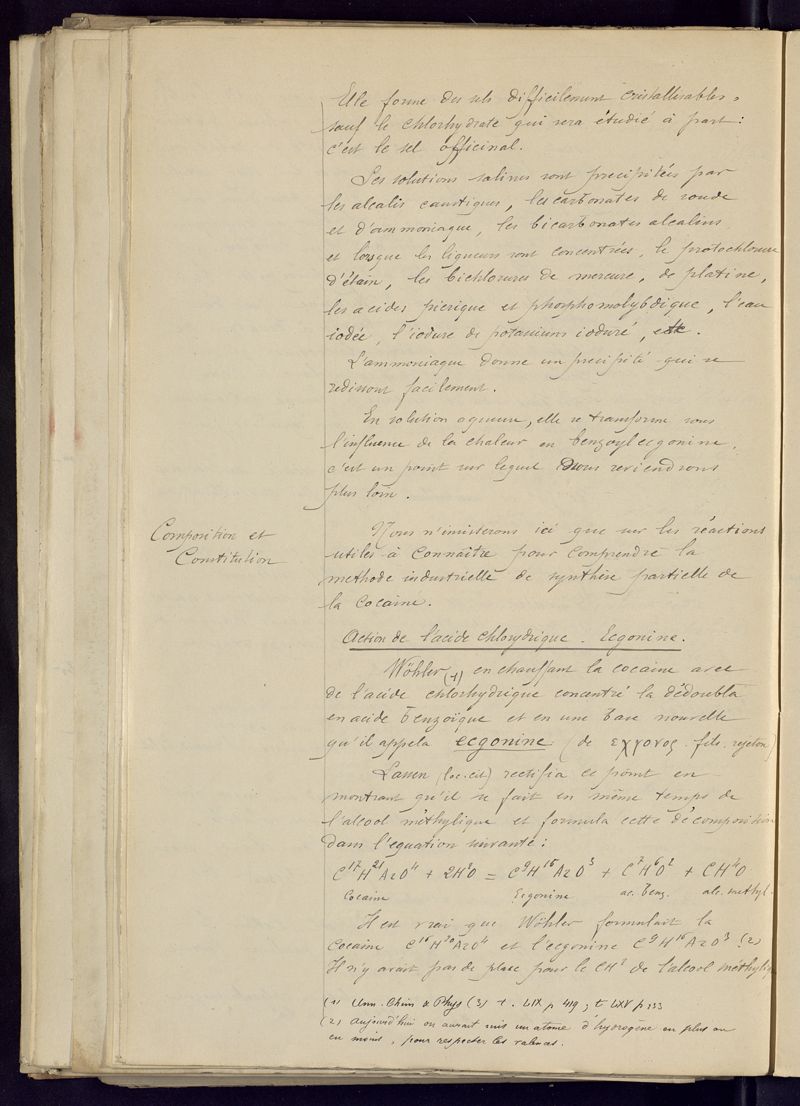 Elle forme des sels difficilement cristallisables,
sauf le chlorhydrate qui sera étudié à part :
c'est le sel officinal.
Ses solutions salines sont precipitées par
les alcalis caustiques, les carbonates de soude
et d'ammoniaque, les bicarbonates alcalins
et lorsque les liqueurs sont concentrées, le protochlorure
d'étain, les bichlorures de mercure, de platine,
les acides picrique et phosphomolybdique, l'eau
iodée, l'iodure de potassium ioduré, etc.
L'ammoniaque donne un precipité qui se
redissout facilement.
En solution aqueuse, elle se transforme sous
l'influence de la chaleur en benzoylecgonine,
c'est un point sur lequel nous reviendrons
plus loin.
Composition et
Constitution
Nous n'insisterons ici que sur les réactions
utiles à connaître pour comprendre la
methode industrielle de synthèse partielle de
la cocaine.
Action de l'acide chlorydrique. Ecgonine.
Wöhler (1) en chauffant la cocaine avec
de l'acide chlorhydrique concentré la dédoubla
en acide benzoïque et en une base nouvelle
qu'il appela ecgonine (de εχγονος. fils. rejeton)
Lossen (loc. cit) rectifia ce point en
montrant qu'il se fait en même temps de
l'alcool méthylique et formula cette décomposition
dans l'equation suivante :
C¹⁷H²¹AzO⁴ + 2H²O = C⁹H¹⁵AzO³ + C⁷H⁶O² + CH⁴O
Cocaine Ecgonine ac. benz. alc. methyl.
Il est vrai que Wöhler formulait la
cocaine C¹⁶H²⁰AzO⁴ et l'ecgonine C⁹H¹⁶AzO³ (2)
Il n'y avait pas de place pour le CH² de l'alcool méthylique
(1) Ann. Chim & Phys (3) t. LIX p 419 ; t. LXV p 233
(2) aujourd'hui on aurait mis un atome d'hydrogène en plus ou
en moins, pour respecter les valences.